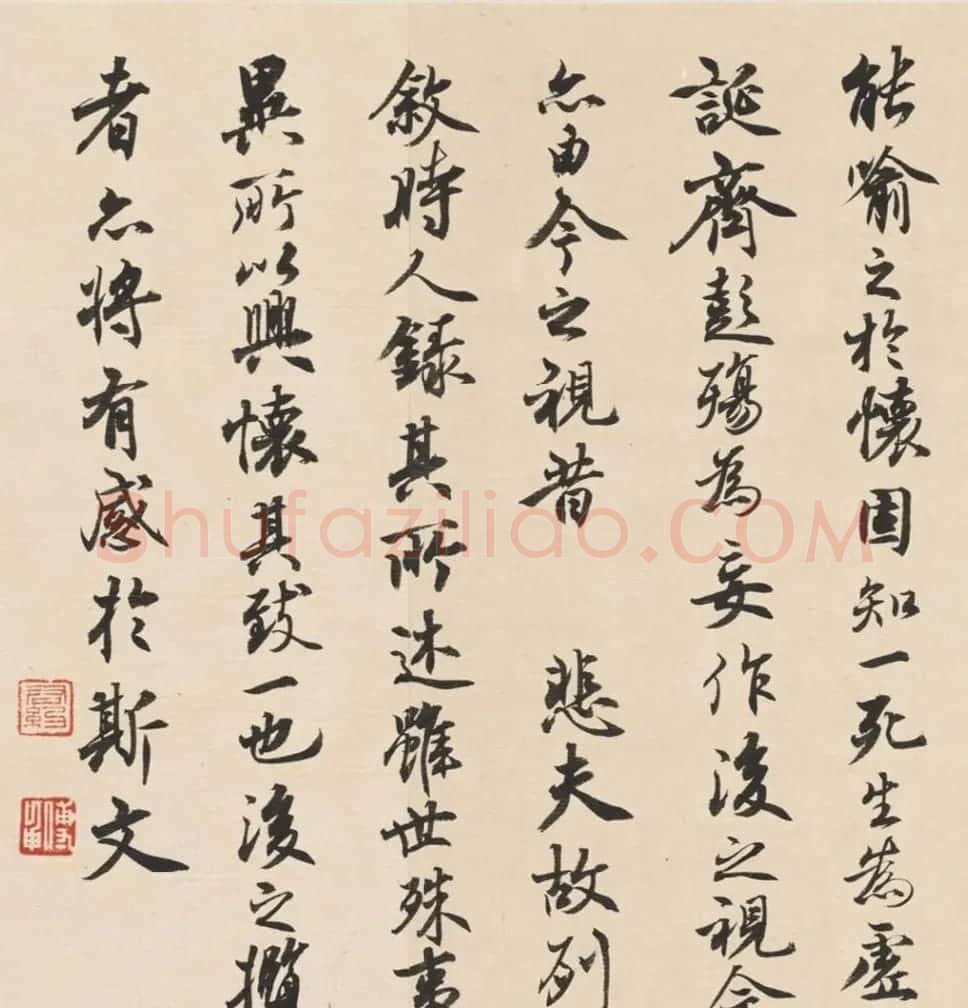 能喻之於懷固知一死生為虛
誕齊彭殤為妄作後之視今
亦由今之視昔 悲夫故列
敘時人錄其所述雖世殊事
異所以興懷其致一也後之攬
者亦將有感於斯文
shufaziliao.COM